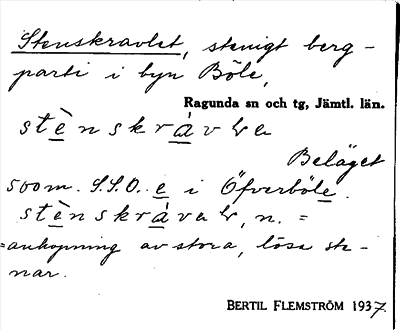 Stenskravlet, stenigt berg-
parti i byn Böle,
Ragunda sn och tg, Jämtl. län.
stènskràvlɐ
Beläget
500 m. S.S.O. e i Öfverböle.
stènskràvel, n. =
=anhopning av stora, lösa ste-
nar.
BERTIL FLEMSTRÖM 1937.